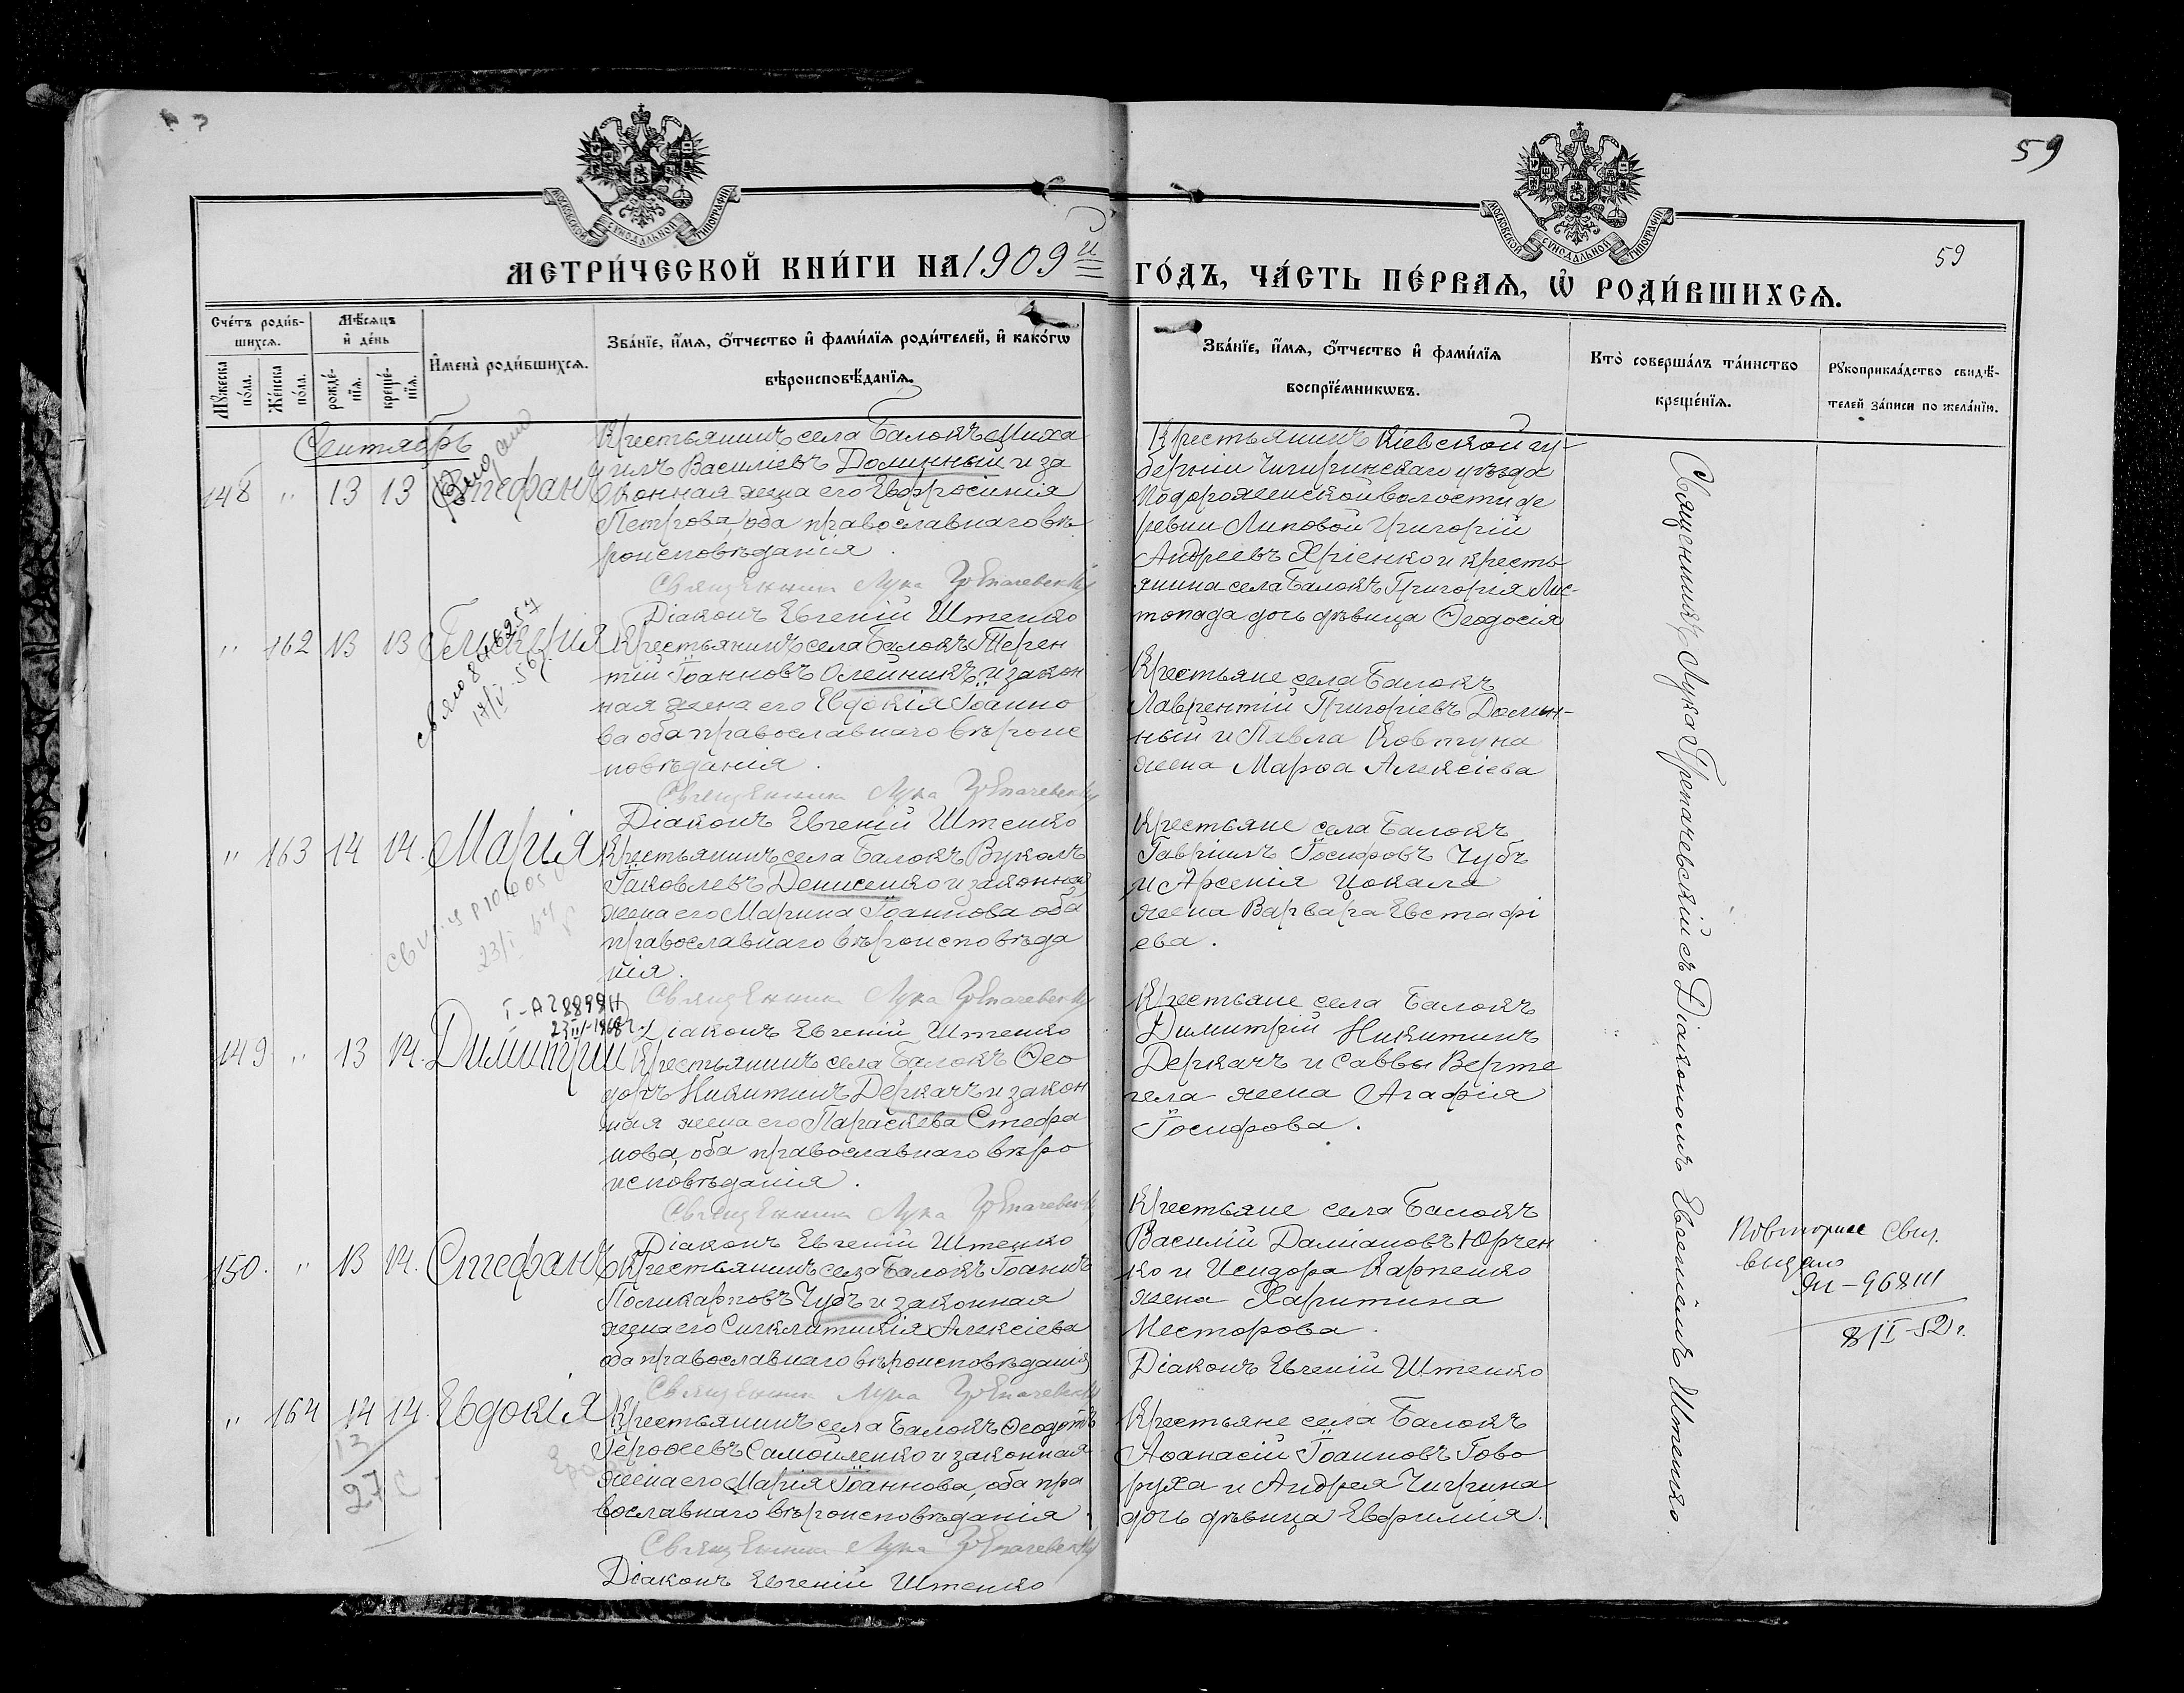 59
МОСКОВСКОЙ СѴНОДАЛЬНОЙ ТИПОГРАФІИ
МОСКОВСКОЙ СѴНОДАЛЬНОЙ ТИПОГРАФІИ
59
МЕТРИ́ЧЕСКОЙ КНИ́ГИ НА 1909й ГО́ДЪ, ЧА́СТЬ ПЕ́РВАѦ, Ѡ҆ РОДИ́ВШИХСѦ.
Сче́тъ роди́в-
шихсѧ.
Мꙋ́жеска по́ла.
Же́нска по́ла.
Мѣ́сѧцъ и҆ де́нь
рожде́-нїѧ.
креще́-нїѧ.
И҆мена̀ роди́вшихсѧ.
Зва́нїе, и҆́мѧ, ѻ҆́тчество и҆ фами́лїѧ роди́телей, и҆ како́гѡ
вѣроисповѣ́данїѧ.
Зва́нїе, и҆́мѧ, ѻ҆́тчество и҆ фами́лїѧ
воспрїе́мникѡвъ.
Кто̀ соверша́лъ та́инство
креще́нїѧ.
Рꙋкоприкла́дство свидѣ́-
телей за́писи по жела́нїю.
Сентябрь
148 " 13 13 Стефанъ
Крестьянинъ села Балокъ Миха
илъ Василіевъ Долинный и за
конная жена его Евфросинія
Петрова, оба православнаго вѣ
роисповѣданія.
Священникъ Лука Грепачевскій
Діаконъ Евгеній Штенко
Крестьянинъ Кіевской гу-
берніи Чигиринскаго уѣзда
Подорожненской волости де
ревни Липовой Григорій
Андреевъ Хріенко и кресть
янина села Балокъ Григорія Лис-
топада дочь дѣвица Ѳеодосія
" 162 13 13 Гликерія
17/V 56
Крестьянинъ села Балокъ Терен
тій Іоанновъ Олейникъ и закон
ная жена его Евдокія Іоанно
ва оба православнаго вѣроис
повѣданія.
Священникъ Лука Грепачевскій
Діаконъ Евгеній Штенко
Крестьяне села Балокъ
Лаврентій Григоріевъ Долин-
ный и Павла Ковтуна
жена Марѳа Алексіева
" 163 14 14. Марія
23/I 64
Крестьянинъ села Балокъ Вуколъ
Іаковлевъ Денисенко и законная
жена его Марина Іоаннова оба
православнаго вѣроисповѣда
нія.
Священникъ Лука Грепачевскій
Діаконъ Евгеній Штенко
Крестьяне села Балокъ
Гавріилъ Іосифовъ Чубъ
и Арсенія Цокала
жена Варвара Евстафі
ева.
149 " 13 14. Димитрій
I-А 28898
23/III-1968г.
Крестьянинъ села Балокъ Ѳео
доръ Никитинъ Деркачъ и закон
ная жена его Параскева Стефа
нова, оба православнаго вѣро
исповѣданія.
Священникъ Лука Грепачевскій
Діаконъ Евгеній Штенко
Крестьяне села Балокъ
Димитрій Никитинъ
Деркачъ и Саввы Верте
гела жена Агафія
Іосифова.
150. " 13 14. Стефанъ
Крестьянинъ села Балокъ Іоаннъ
Поликарповъ Чубъ и законная
жена его Сигклитикія Алексіева
оба православнаго вѣроисповѣданія
Священникъ Лука Грепачевскій
Крестьяне села Балокъ
Василій Даміановъ Юрчен
ко и Исидора Карпенко
жена Харитина
Несторова.
Діаконъ Евгеній Штенко
Повторное свид.
выдано
968111
8/II-52г.
" 164 14 14. Евдокія
13
27 С
Крестьянинъ села Балокъ Ѳеодотъ
Іероѳеевъ Самойленко и законная
жена его Марія Іоаннова, оба пра
вославнаго вѣроисповѣданія.
Священникъ Лука Грепачевскій
Діаконъ Евгеній Штенко
Крестьяне села Балокъ
Аѳанасій Іоанновъ Гово
руха и Андрея Чигрина
дочь дѣвица Евфимія.
Священникъ Лука Грепачевскій съ Діакономъ Евгеніемъ Штенко.